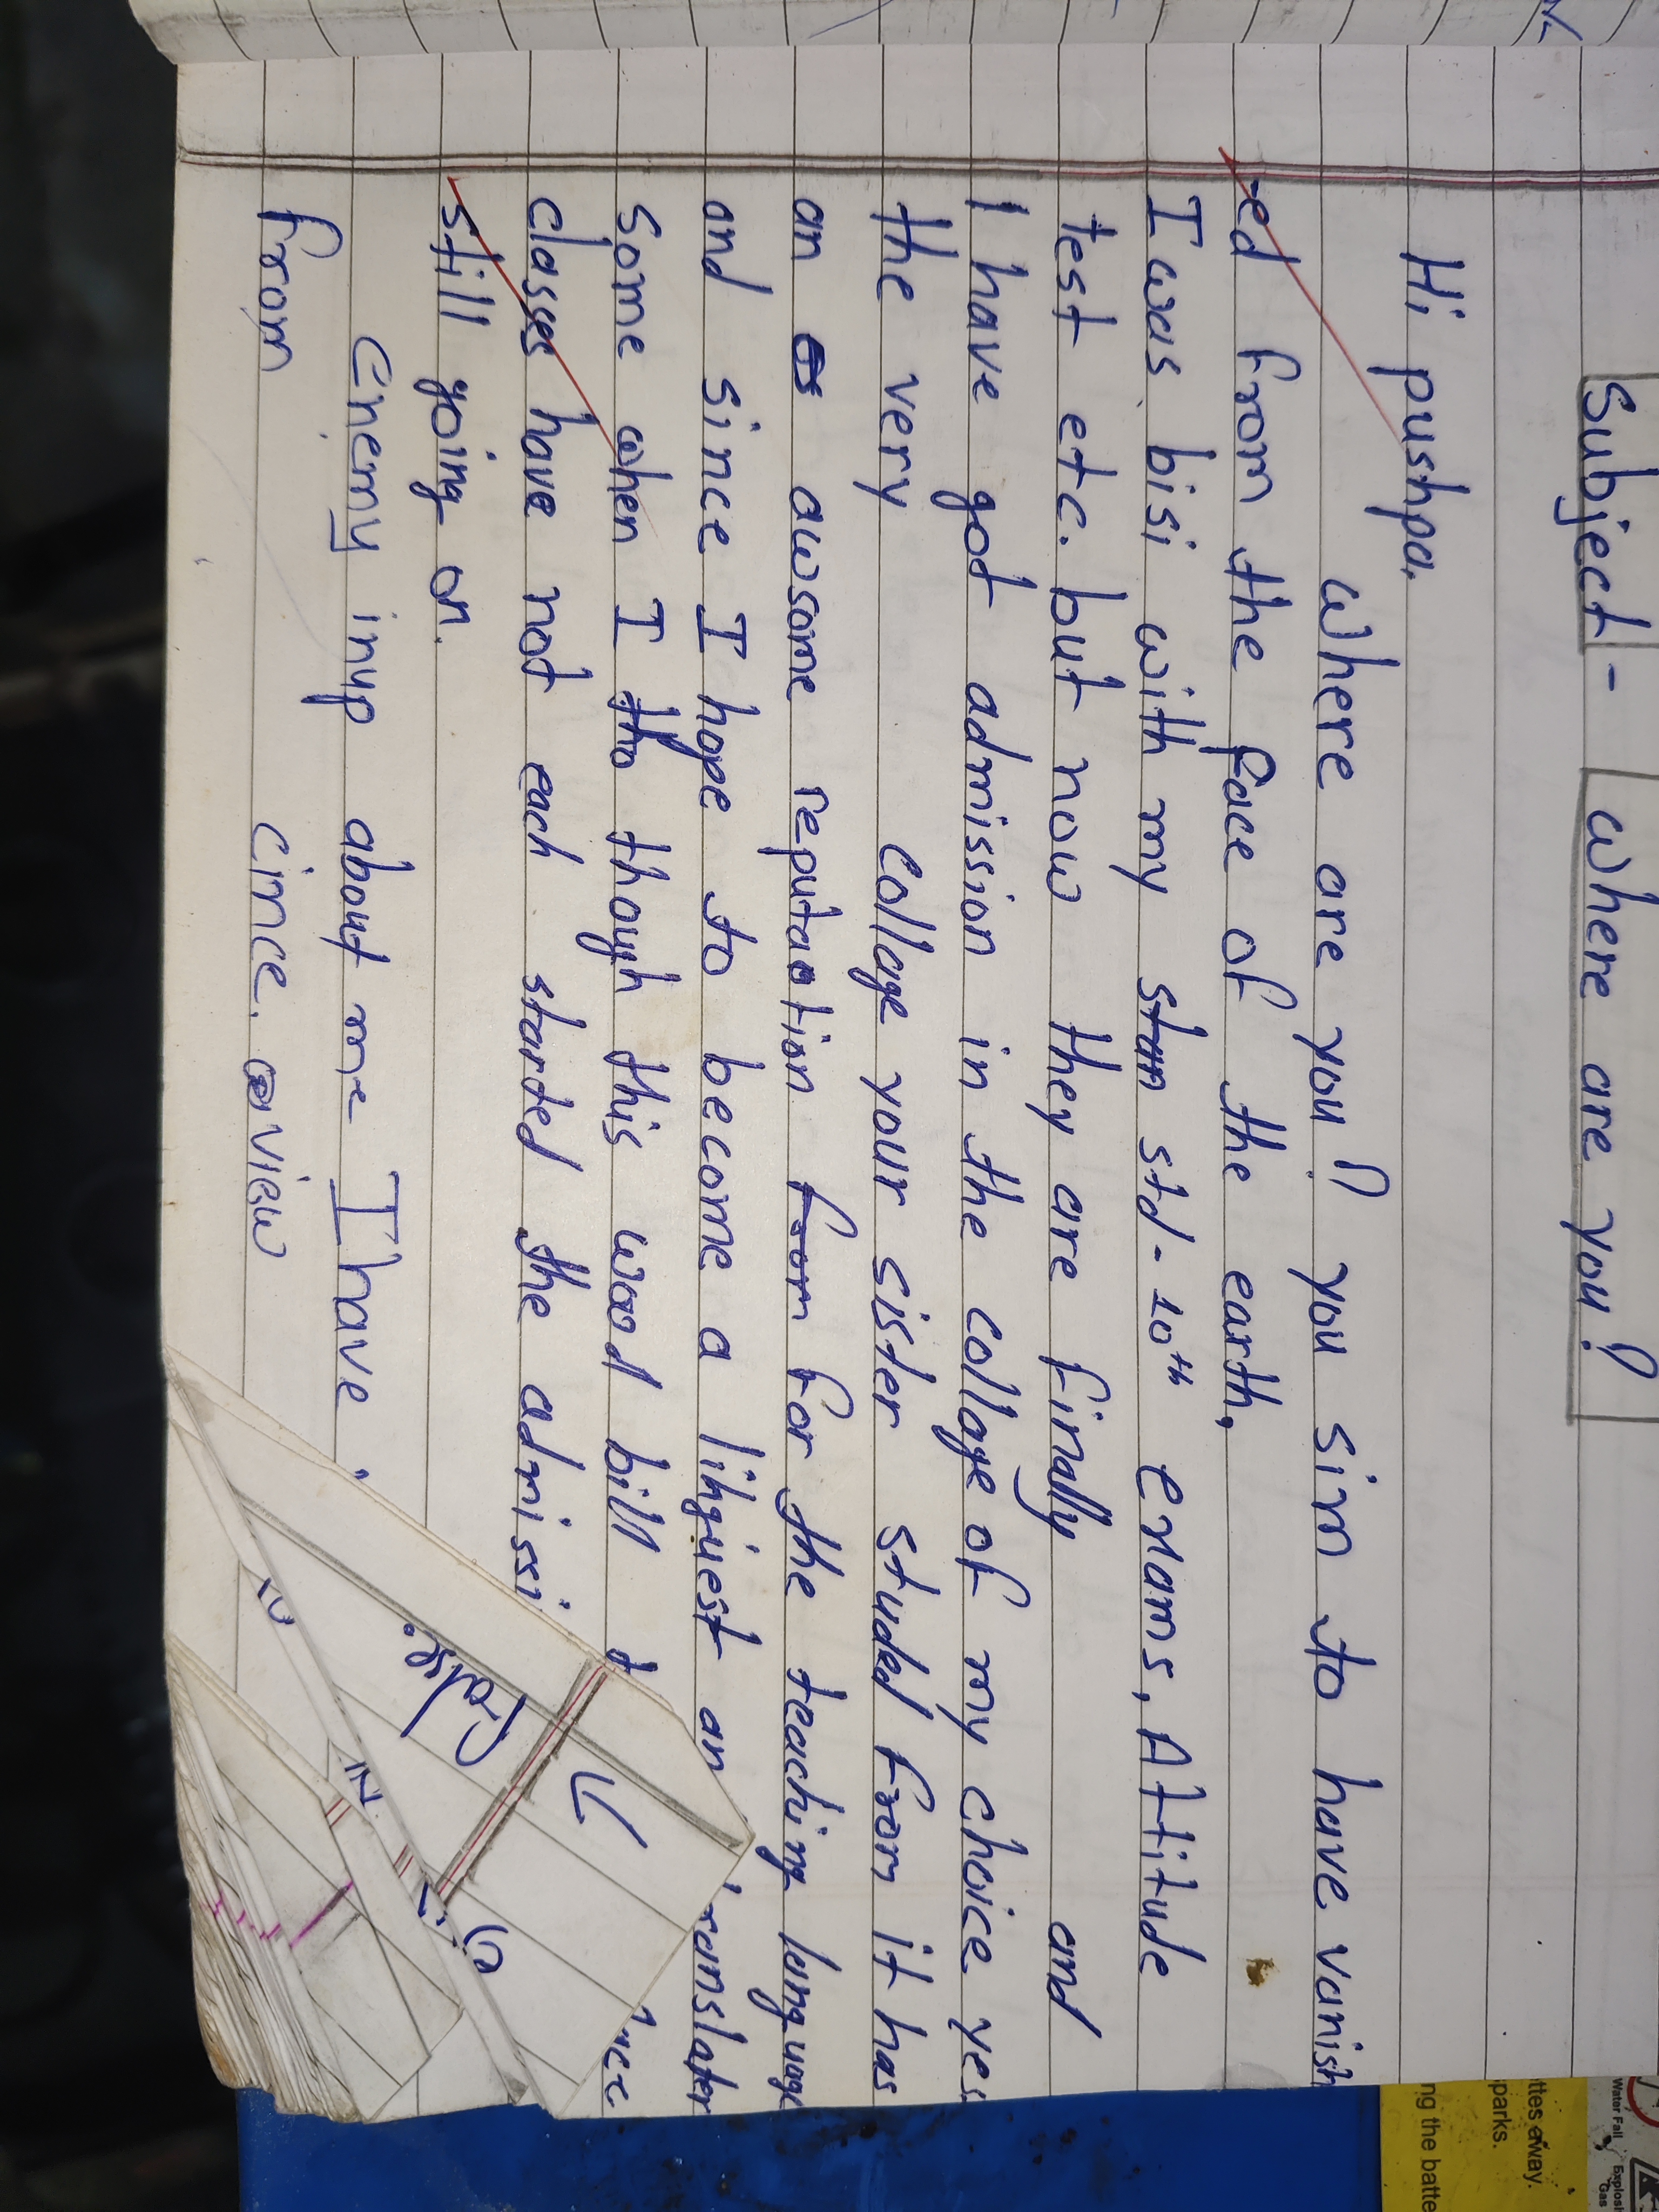 Subject - where are you?
Hi pushpa.
where are you? you sim to have vanish
-ed from the face of the earth.
I was bisi with my std-10th exams, Atitude
test etc. but now they are finally and
I have got admission in the collage of my choice yes
the very collage your sister studed from it has
an awsome reputation for the teaching language
and since I hope to become a linguest an translater
Some when I though this wood bill
classes have not each started the admissi
still going on.
Enemy inup about me I have.
from cince. view
ttes away.
parks.
ng the batte
Water Fall
Explosi
Gas